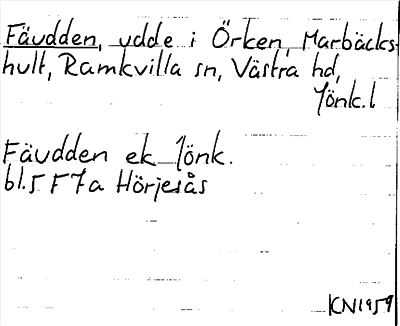 Fäudden, udde i Örken, Marbäcks-
hult, Ramkvilla sn, Västra hd,
Jönk. l
Fäudden ek Jönk.
bl. 5 F 7 a Hörjesås
KN 1959